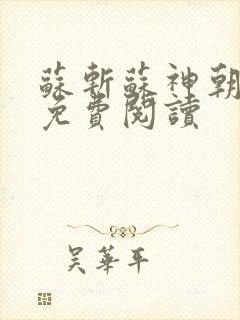 蘇斬蘇神朝
免費閱讀
吴華平